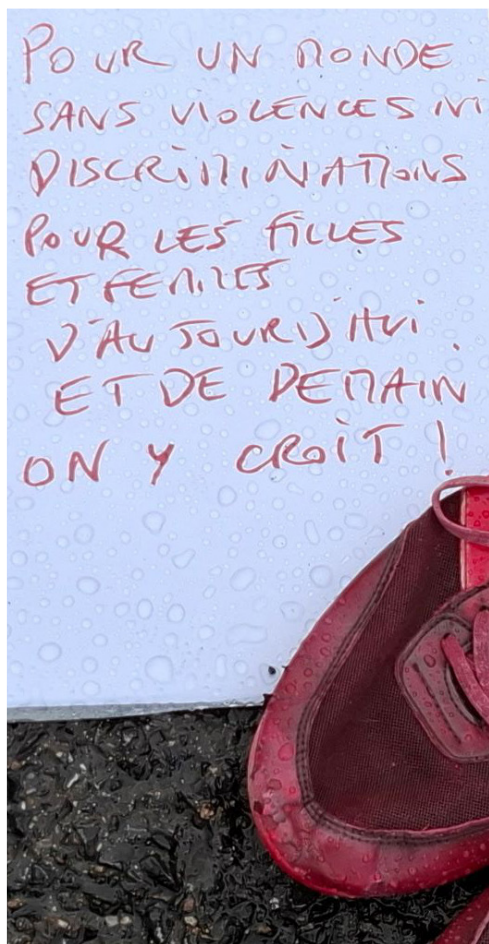 POUR UN MONDE
SANS VIOLENCES NI
DISCRIMINATIONS
POUR LES FILLES
ET FEMMES
D'AUJOURD'HUI
ET DE DEMAIN
ON Y CROIT !